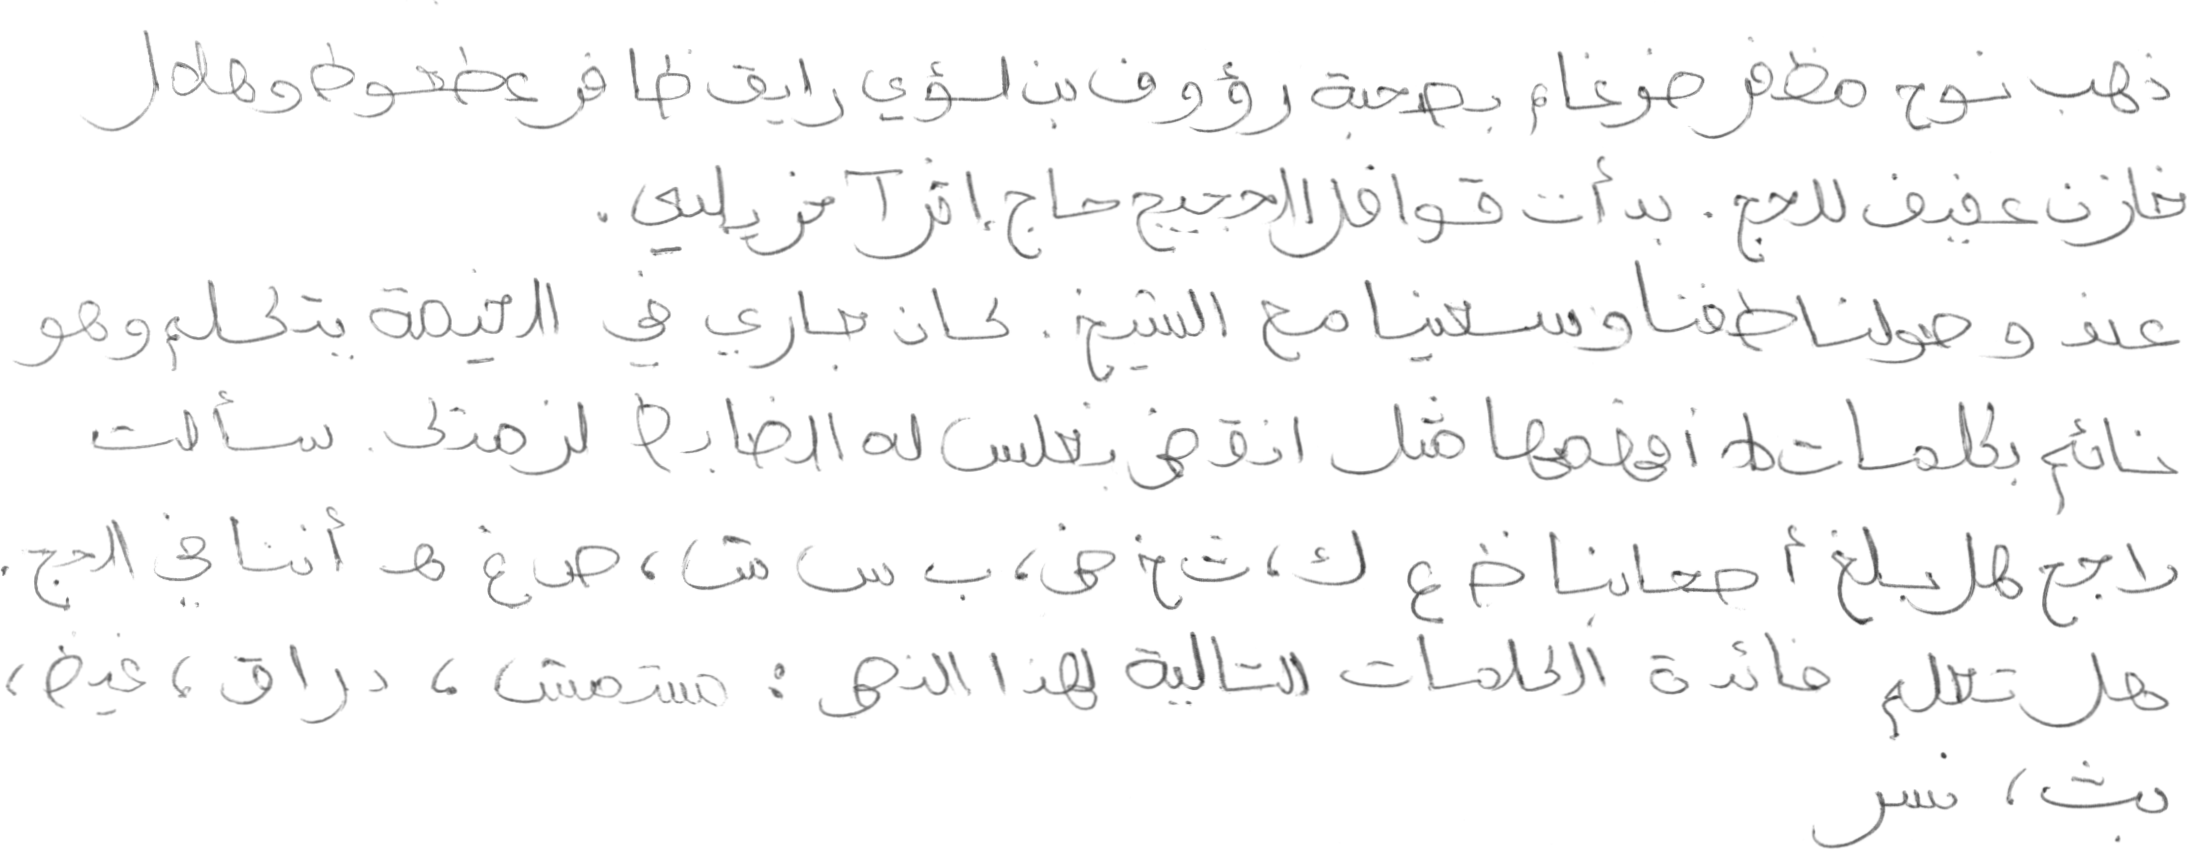 ذهب نوح مظفر ضرغام بصحبة رؤوف بن لؤي رايق ظافر عطعوط وهلال
خازن عفيف للحج. بدأت قوافل الحجيج حاج إثر آخر يلبي.
عند وصولنا طفنا وسعينا مع الشيخ. كان جاري في الخيمة يتكلم وهو
نائم بكلمات لا أفهمها مثل انقض بغلس له الضابط لزمتك. سألت
راجح هل بلغ أصحابنا ظ ع ك، ث خ ض، ب س ش، ص غ هـ أننا في الحج.
هل تعلم فائدة الكلمات التالية لهذا النص: مستمش، دراق، غيض،
بث، نسر